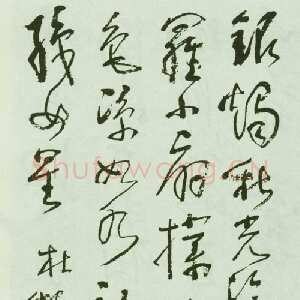 銀燭秋光冷
羅小扇撲
色涼如水
織女星 杜
Shufawang.CN